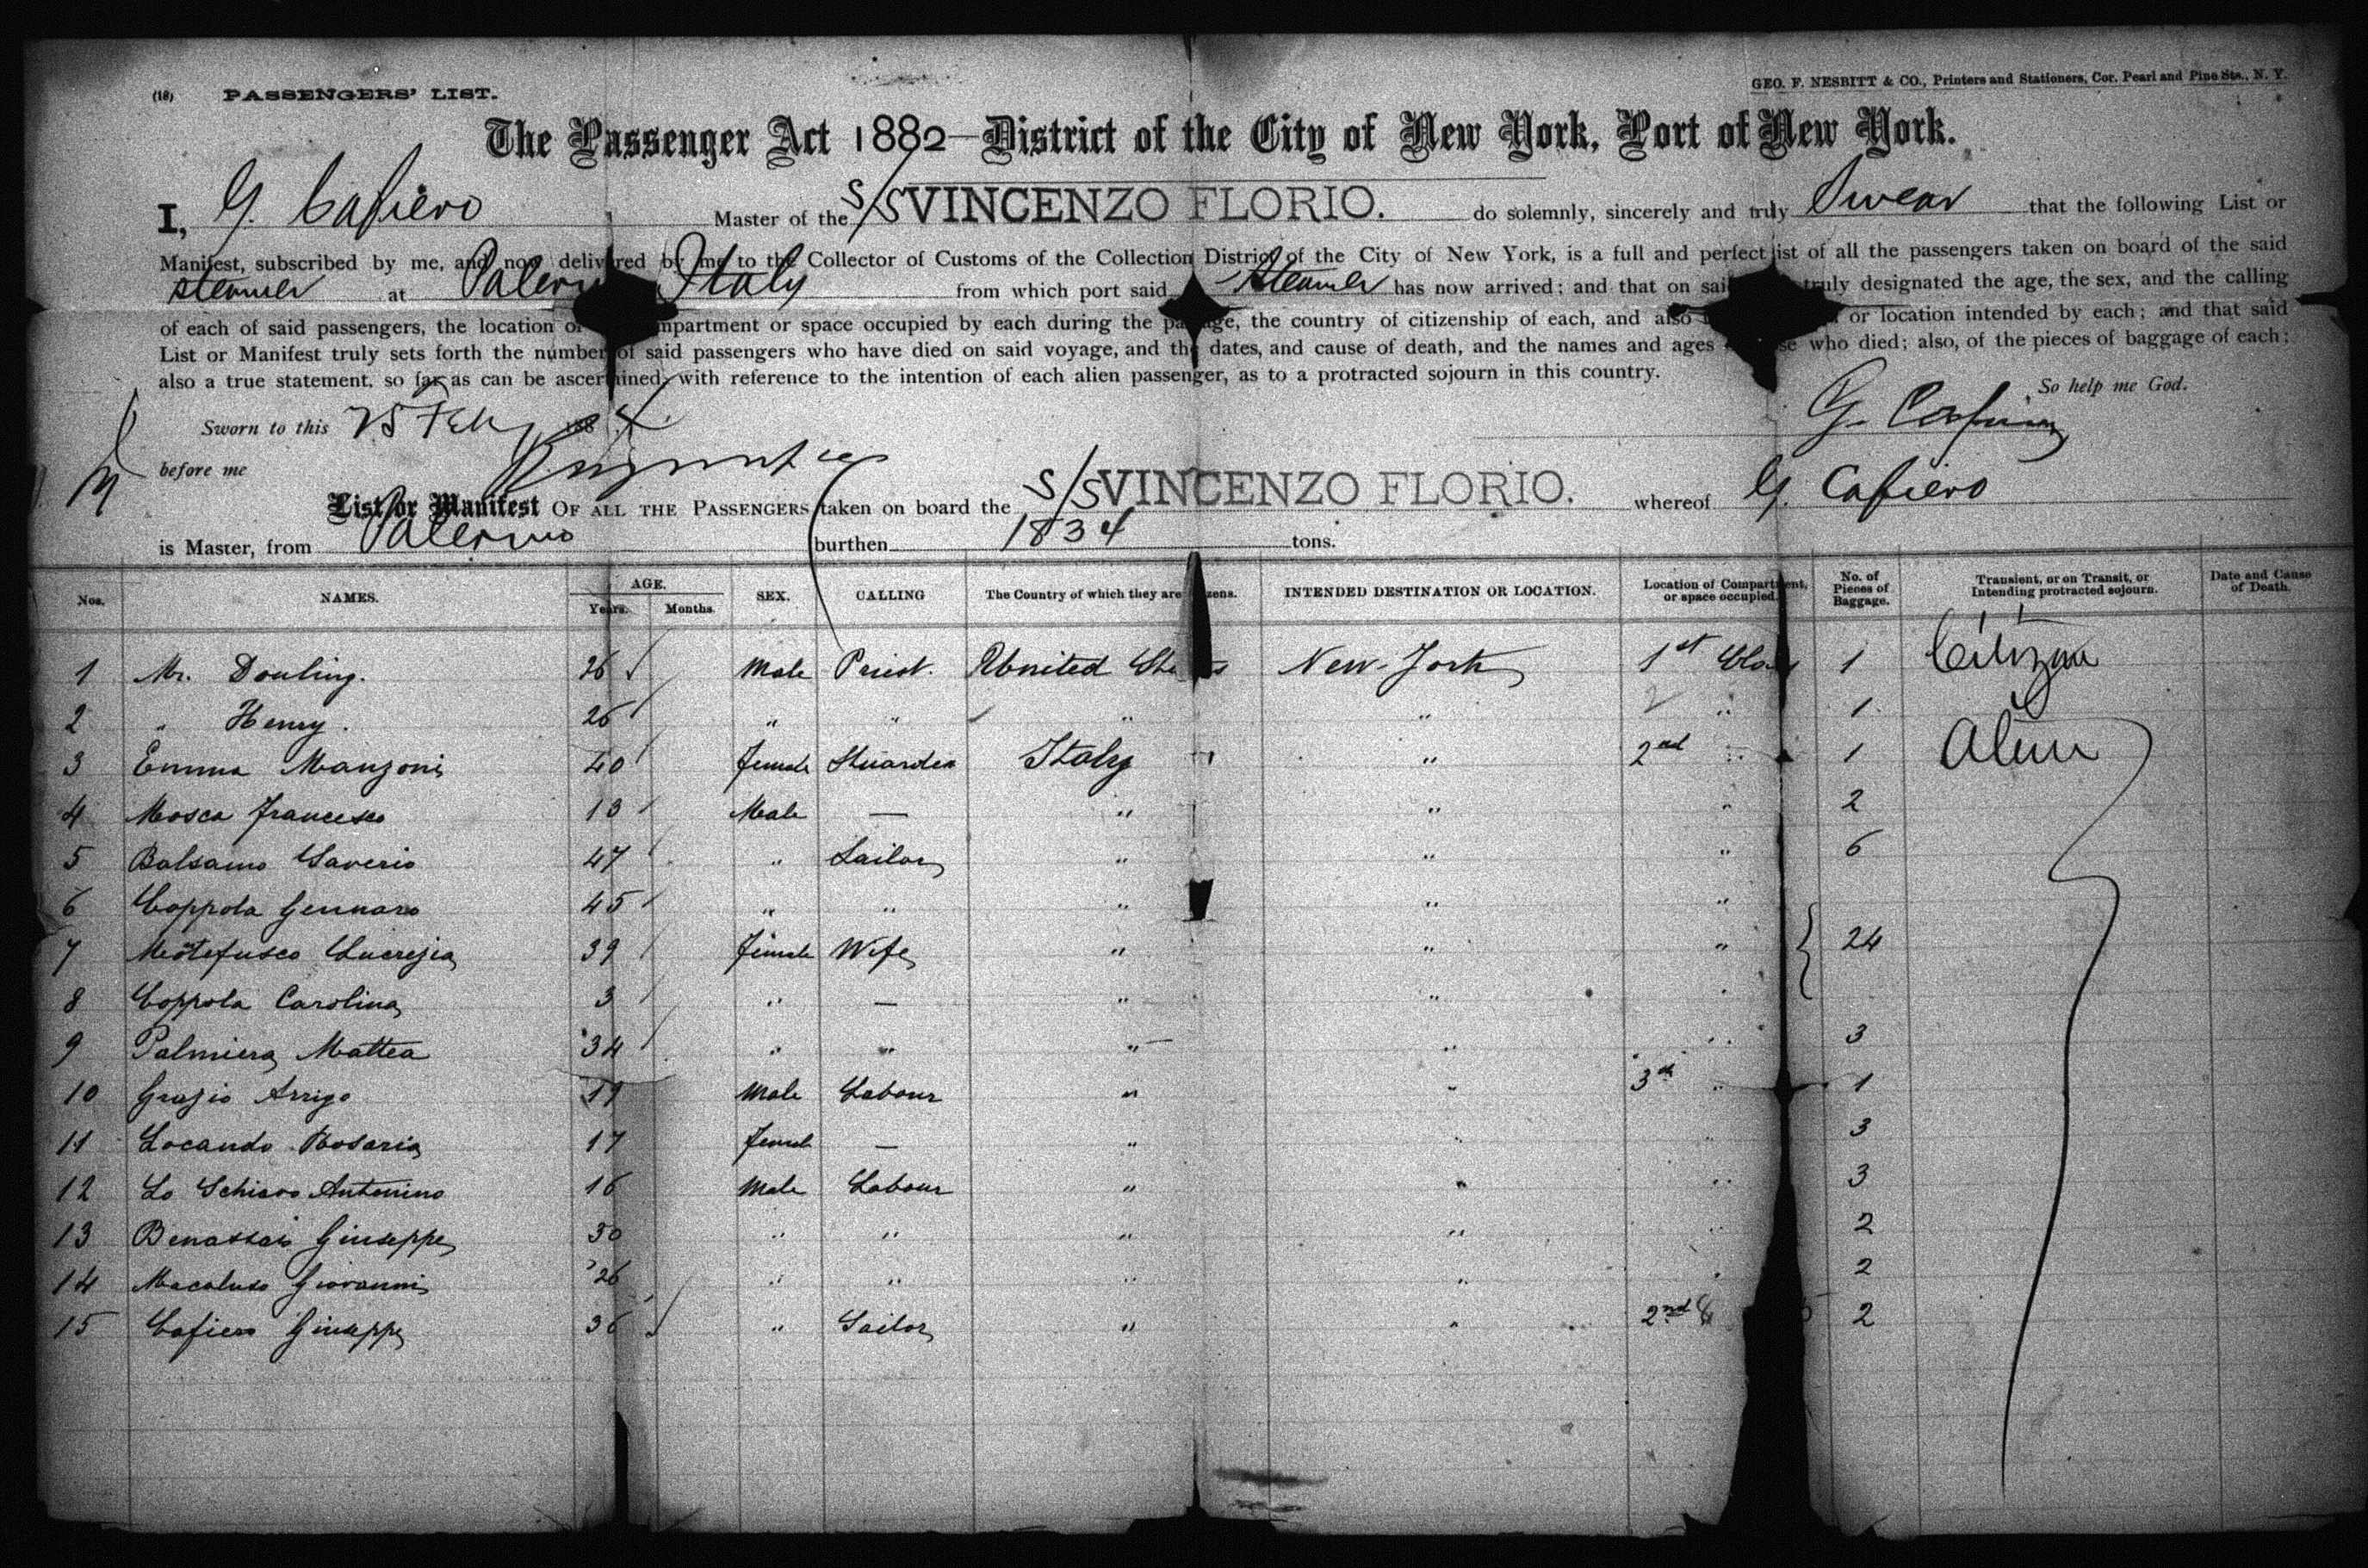 (18) PASSENGERS' LIST. GEO. F. NESBITT & CO., Printers and Stationers, Cor. Pearl and Pine Sts., N. Y.
The Passenger Act 1882—District of the City of New York, Port of New York.
I, G. Cafiero Master of the S/S VINCENZO FLORIO. do solemnly, sincerely and truly Swear that the following List or
Manifest, subscribed by me, and now delivered by me to the Collector of Customs of the Collection District of the City of New York, is a full and perfect list of all the passengers taken on board of the said
steamer at Palermo Italy from which port said Steamer has now arrived; and that on said truly designated the age, the sex, and the calling
of each of said passengers, the location of compartment or space occupied by each during the passage, the country of citizenship of each, and also or location intended by each; and that said
List or Manifest truly sets forth the number of said passengers who have died on said voyage, and the dates, and cause of death, and the names and ages who died; also, of the pieces of baggage of each;
also a true statement, so far as can be ascertained, with reference to the intention of each alien passenger, as to a protracted sojourn in this country. So help me God.
Sworn to this 25 Feby 188 G. Cafiero
before me
List or Manifest OF ALL THE PASSENGERS taken on board the S/S VINCENZO FLORIO. whereof G. Cafiero
is Master, from Palermo burthen 1834 tons.
Nos. NAMES. AGE. Years. Months. SEX. CALLING The Country of which they are citizens. INTENDED DESTINATION OR LOCATION. Location of Compartment, or space occupied. No. of Pieces of Baggage. Transient, or on Transit, or Intending protracted sojourn. Date and Cause of Death.
1 Mr. Douling. 26 Male Priest. United States New-York 1st Class 1 Citizen
2 " Henry. 26 " " " " 2 " 1
3 Emma Manzoni 40 Female Stuardes Italy " 2nd " 1 Alien
4 Mosca Francesco 13 Male — " " " 2
5 Balsamo Saverio 47 " Sailor " " " 6
6 Coppola Gennaro 45 " " " " "
7 Motefusco Lucrezia 39 Female Wife " " " 24
8 Coppola Carolina 3 " — " " "
9 Palmiera Mattea 34 " " " " " 3
10 Grazio Arrigo 19 Male Labour " " 3d " 1
11 Locando Rosaria 17 Female — " " " 3
12 Lo Schiavo Antonino 16 Male Labour " " " 3
13 Benassai Giuseppe 30 " " " " " 2
14 Macaluso Giovanni 26 " " " " " 2
15 Cafiero Giuseppe 36 " Sailor " " 2nd 2